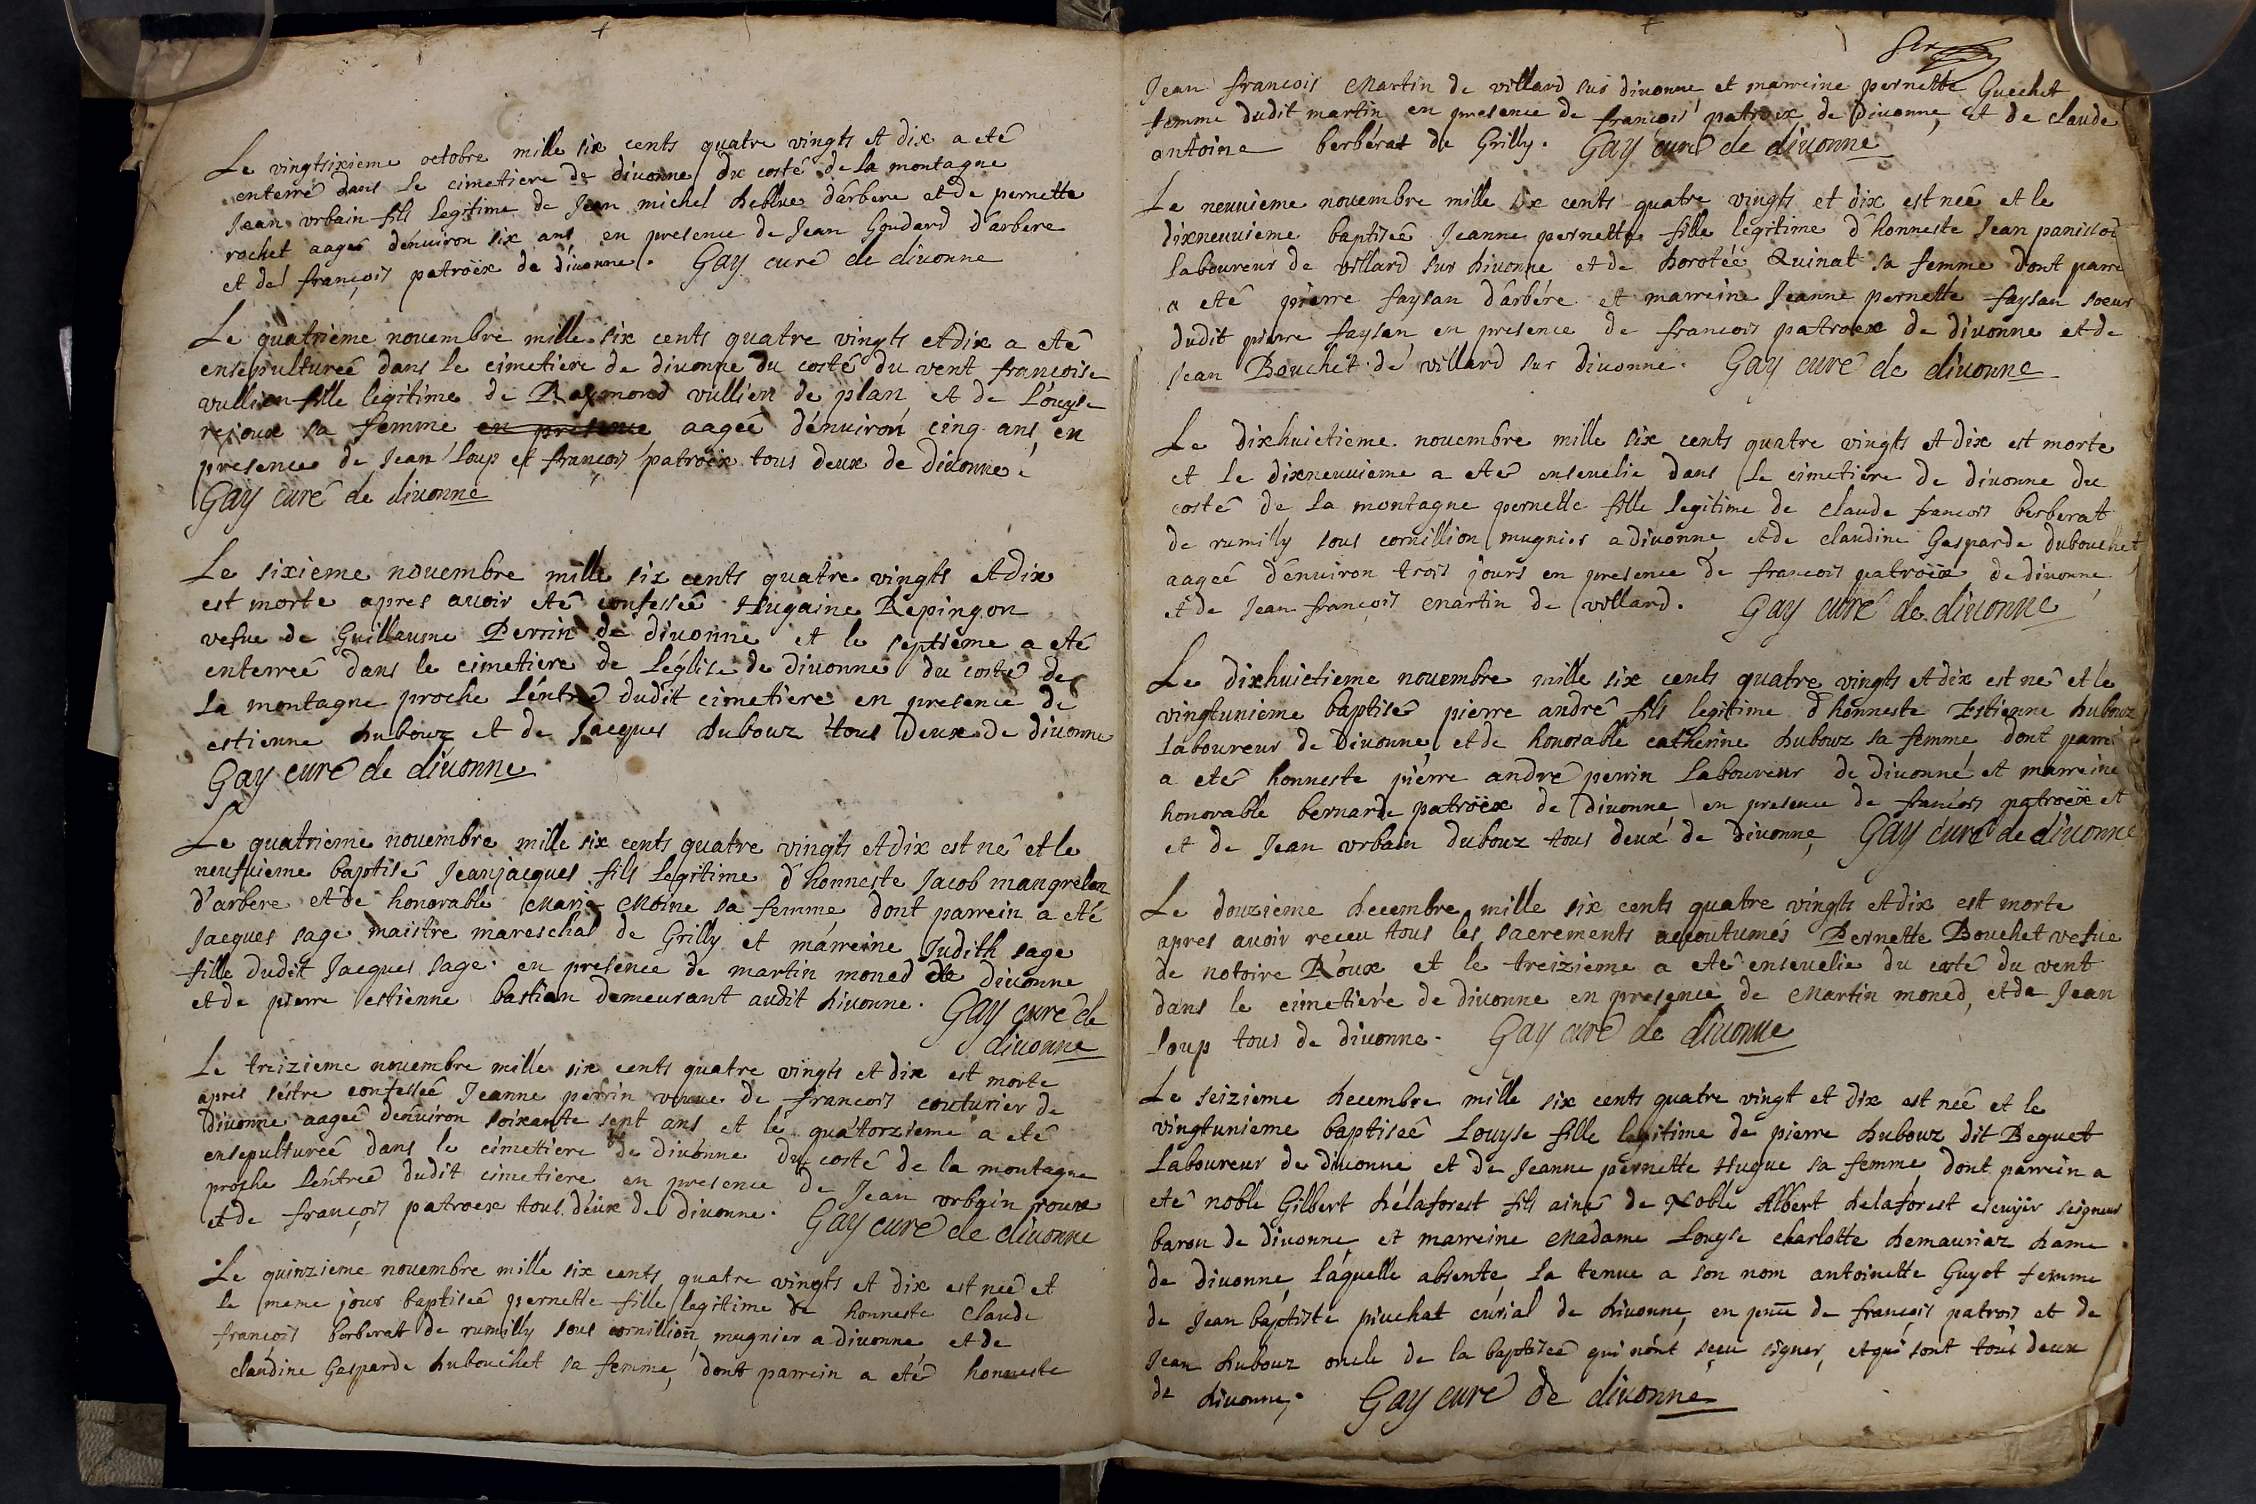 Le vingtsixieme octobre mille six cents quatre vingts et dix a eté
enterré dans le cimetiere de diuonne du costé de la montagne
Jean vrbain fils legitime de Jean michel deblue d'arbere et de pernette
rochet aagé d'enuiron six ans en presence de Jean Goudard d'arbere
et de françois patroëx de diuonne. Gay curé de diuonne
Le quatrieme nouembre mille six cents quatre vingts et dix a eté
ensepulturée dans le cimetiere de diuonne du costé du vent francoise
vullien fille legitime de Raymond vullien de plan et de Louyse
rejoux sa femme en presence aagée d'enuiron cinq ans en
presence de Jean Loup et françois patroëx tous deux de diuonne
Gay curé de diuonne
Le sixieme nouembre mille six cents quatre vingts et dix
est morte apres auoir eté confessée Hugaine Repingon
vefue de Guillaume Perrin de diuonne et le septieme a eté
enterreé dans le cimetiere de l'église de diuonne du costé de
la montagne proche l'éntreé dudit cimetiere en presence de
estienne dubouz et de Jacques dubouz tous deux de diuonne
Gay curé de diuonne
Le quatrieme nouembre mille six cents quatre vingts et dix est né et le
neufuieme baptisé Jeanjacques fils legitime d'honneste Jacob mangrelon
d'arbere et de honorable Marie Moine sa femme dont parrein a eté
Jacques sage maistre mareschal de Grilly et marreine Judith sage
fille dudit Jacques sage. en presence de martin moned de diuonne
et de pierre estienne bastian demeurant audit diuonne. Gay curé de
diuonne
Le treizieme nouembre mille six cents quatre vingts et dix est morte
apres s'estre confessée Jeanne perrin vefue de francois couturier de
diuonne aageé denuiron soixante sept ans et le quatorzieme a eté
ensepultureé dans le cimettiere de diuonne du costé de la montagne
proche l'éntreé dudit cimetiere en presence de Jean vrbain roux
et de françois patroex tous deux de diuonne. Gay curé de diuonne
Le quinzieme nouembre mille six cents quatre vingts et dix est neé et
le meme jour baptiseé pernette fille legitime de honneste Claude
françois berberat de rumilly sous cornillion mugnier a diuonne et de
claudine Gasparde dubouchet sa femme, dont parrein a eté honneste
Jean françois Martin de villard sus diuonne et marreine pernette Guechet
femme dudit martin en presence de francois patroex de Diuonne, et de claude
antoine berbérat de Grilly. Gay curé de diuonne
Le neuuieme nouembre mille six cents quatre vingts et dix est neé et le
dixneuuieme baptiseé Jeanne pernette fille legitime d'honneste Jean panissod
laboureur de villard sur diuonne et de dorotée Quinat sa femme dont parre
a eté pierre faysan d'arbére et marreine Jeanne pernette faysan soeur
dudit pierre faysan en presence de francois patroëx de diuonne et de
Jean Bouchet de villard sur diuonne. Gay curé de diuonne
Le dixhuictieme nouembre mille six cents quatre vingts et dix est morte
et le dixneuuieme a eté enseuelie dans le cimetiere de diuonne du
costé de la montagne pernette fille legitime de claude francois berberat
de rumilly sous cornillion mugnier a diuonne, et de claudine Gasparde dubouchet
aageé d'enuiron trois jours en presence de francois patroëx de diuonne
et de Jean françois martin de villard. Gay curé de diuonne
Le dixhuictieme nouembre mille six cents quatre vingts et dix est né et le
vingtunieme baptisé pierre andré fils legitime d'honneste Estienne dubouz
laboureur de Diuonne, et de honorable catherine dubouz sa femme, dont parrei
a eté honneste piérre andré perrin laboureur de diuonne et marreine
honorable bernarde patroëx de diuonne en presence de françois patroëx et
et de Jean vrbain dubouz tous deux de diuonne, Gay curé de diuonne
Le douzieme decembre mille six cents quatre vingts et dix est morte
apres auoir receu tous les sacrements accoutumés Pernette Bouchet vefue
de notoire Roux et le treizieme a eté enseuelie du costé du vent
dans le cimetiere de diuonne en presence de Martin moned, et de Jean
Loup tous de diuonne. Gay curé de diuonne
Le seizieme decembre mille six cents quatre vingt et dix est neé et le
vingtunieme baptiseé Louyse fille legitime de pierre dubouz dit Beguet
Laboureur de diuonne et de Jeanne pernette Hugue sa femme, dont parrein a
eté noble Gilbert délaforest fils ainé de Noble Albert delaforest escuyer seigneur
baron de diuonne, et marreine Madame Louyse charlotte demauriaz dame
de diuonne, laquelle absente, la tenue a son nom antoinette Guyot femme
de Jean baptiste piuchat curial de diuonne, en pnce de françois patrois et de
Jean dubouz oncle de la baptiseé qui n'ont sçeu signer, et qui sont tous deux
de diuonne,. Gay curé de diuonne